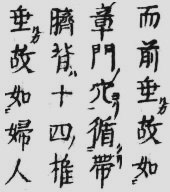 而前垂故如
章門穴循帶
臍背十四椎
垂故如婦人